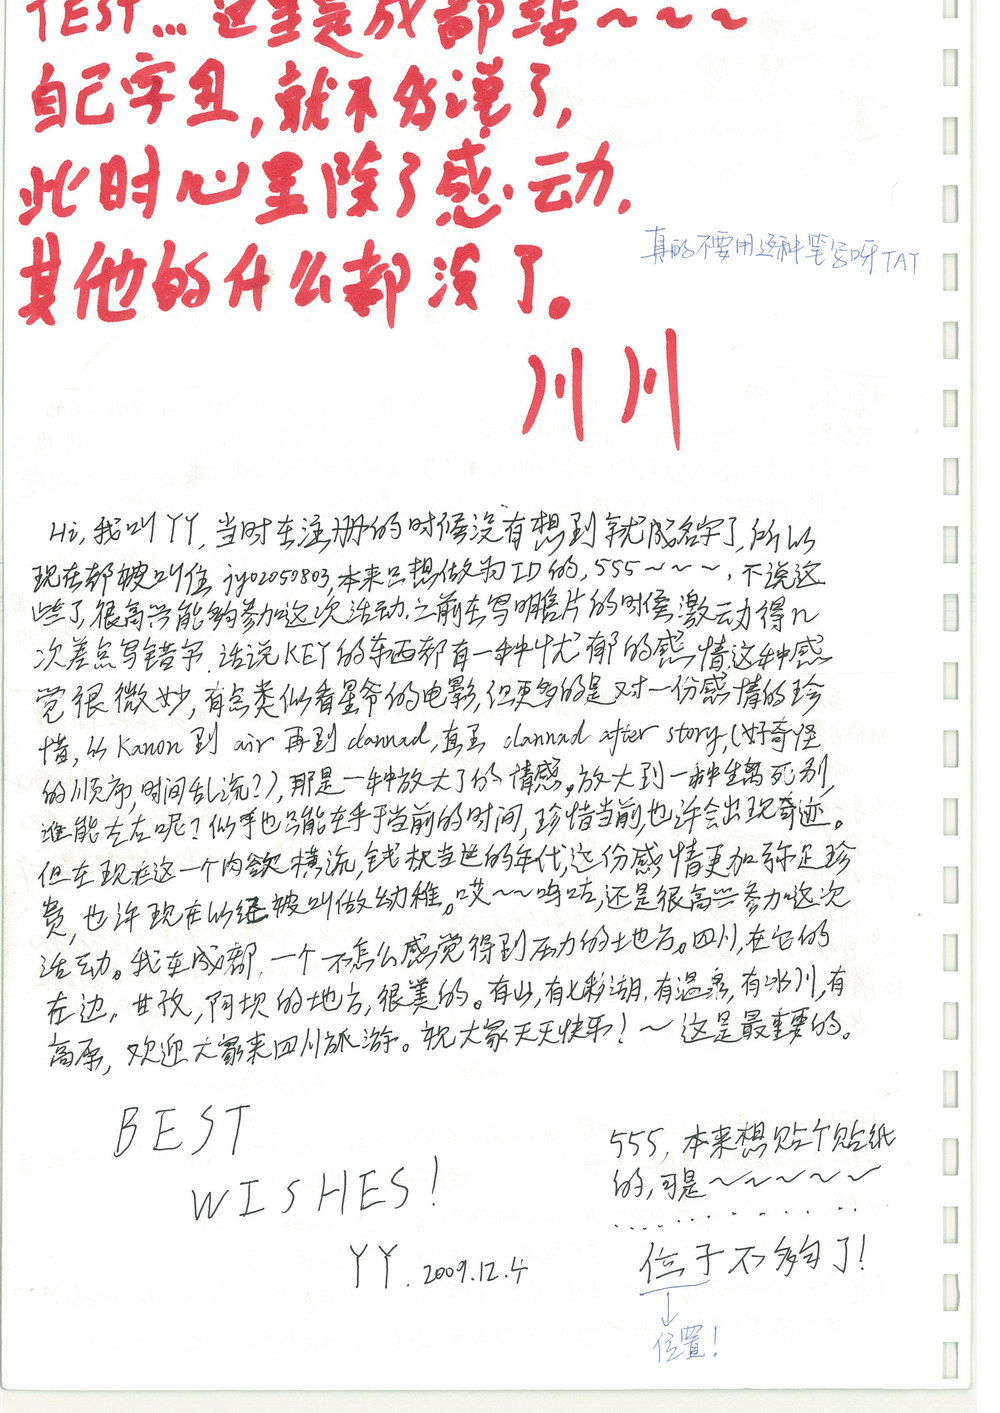 TEST... 这里是成都站～～～
自己字丑，就不多说了，
此时心里除了感动，
其他的什么都没了。
真的不要用这种笔写呀TAT
川川
Hi, 我叫YY, 当时在注册的时候没有想到就成名字了,所以
现在都被叫住 jy02050803,本来只想做为ID的, 555～～～, 不说这
些了,很高兴能够参加这次活动.之前在写明信片的时候激动得n
次差点写错字. 话说KEY的东西都有一种忧郁的感情,这种感
觉很微妙,有点类似看星爷的电影,但更多的是对一份感情的珍
惜,从Kanon到 air 再到 clannad,直至 clannad after story,(好奇怪
的顺序,时间乱流?),那是一种放大了的情感。放大到一种生离死别,
谁能左右呢?似乎也只能在乎于当前的时间,珍惜当前,也许会出现奇迹。
但在现在这一个肉欲横流,钱权当道的年代,这份感情更加弥足珍
贵,也许现在以经被叫做幼稚。哎～～呜咕,还是很高兴参加这次
活动。我在成都,一个不怎么感觉得到压力的地方。四川,在它的
左边,甘孜,阿坝的地方,很美的。有山,有七彩湖,有温泉,有冰川,有
高原,欢迎大家来四川旅游。祝大家天天快乐!～这是最重要的。
BEST
WISHES!
YY. 2009.12.4
555, 本来想贴个贴纸
的,可是～～～～～
..............
位子不够了!
↓
位置!